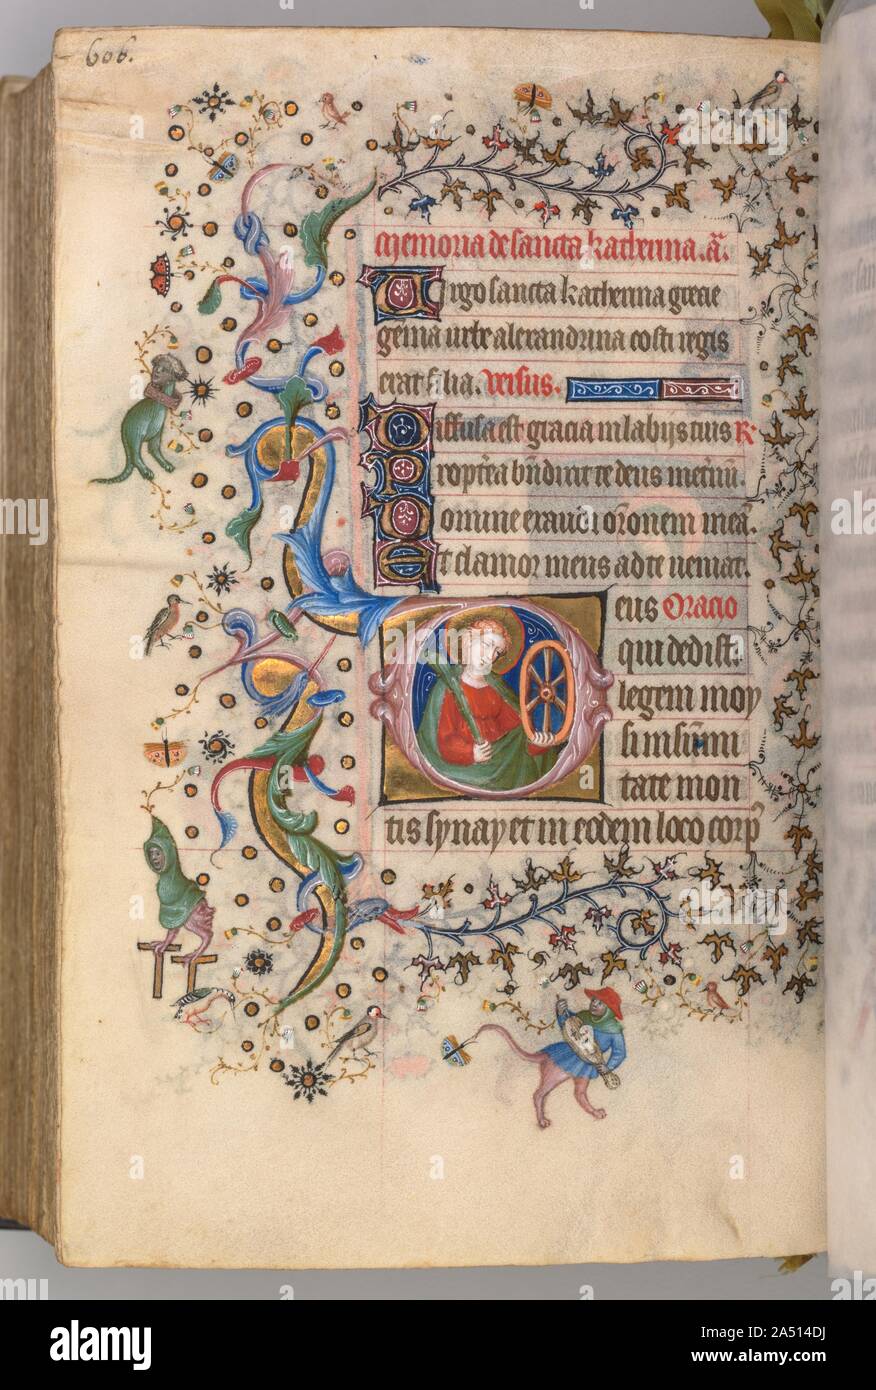 606.
Memoria de sancta katherina. aͣ.
Virgo sancta katherina grecie
gema urbe alexandrina costi regis
erat filia. Versus.
Diffusa est gracia in labijs tuis R̷
Propterea bn̄dixit te deus in et̄nū.
Domine exaudi or̄onem meā.
Et clamor meus ad te ueniat.
Deus Oracio
qui dedisti
legem moy
si in sūmi
tate mon
tis synay et in eodem loco corp̄
alamy
Image ID: 2A514DJ
www.alamy.com